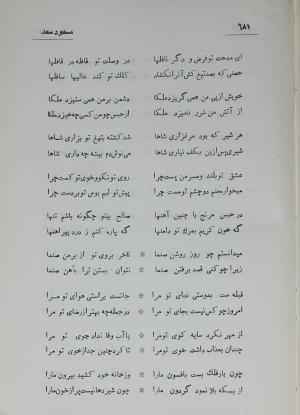 ۶۸۱ مسعود سعد
ای مدحت تو فرض و دگر نافلها در وصلت تو قافله در قافلها
حصنی که بعد تیغ کش آن را نگشاد کلک تو کند عالیها سافلها
خویش از پی من همی گریزد ملکا دشمن بر من همی ستیزد ملکا
از آتش من شرر نخیزد ملکا از حبس چو من کسی چه خیزد ملکا
هر شیر که بود مرغزاری شاها شد کشته بتیغ تو بزاری شاها
شیری پس ازین بکف نیاری شاها می نوش دم بیشه چه داری شاها
عشق تو بلند و صبر من پست چرا روی تو نکو و خوی تو کست چرا
میخواره منم دو چشم تو مست چرا پیش تو لبم بوس تو بر دست چرا
در حبس مرنج با چنین آهنها صالح بیتو چگونه باشم تنها
گه خون گریم بمرگ تو دامنها گه پاره کنم ز درد پیراهنها
میدانستم چو روز روشن صنما کاخر بروی تو از بر من صنما
زیرا چو کنی قصد برفتن صنما نتوان بستن ترا بآهن صنما
قبله ست بدوستی ندای تو مرا جانست براستی هوای تو مرا
امروز چو کس نیست بجای تو مرا در جمله چه بهتر از رضای تو مرا
از مهر نکرد سایه کوی تو مرا یا آب وفا نداد جوی تو مرا
چندان بعذاب داشت خوی تو مرا تا کرد چنین جدا خوی تو مرا
چون یار فلک بست بافسون ما را وز خانه خود کشید بیرون ما را
از بسکه بلا نمود گردون ما را چون شیر دهانیست پر از خون ما را